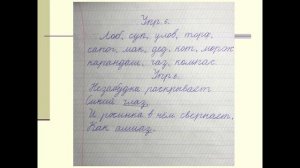 Упр. 5.
Лоб, суп, улов, торф,
сапог, мак, дед, кот, морож
карандаш, газ, компас.
Упр. 6.
Незабудка раскрывает
Синий глаз,
И росинка в нём сверкает,
Как алмаз.